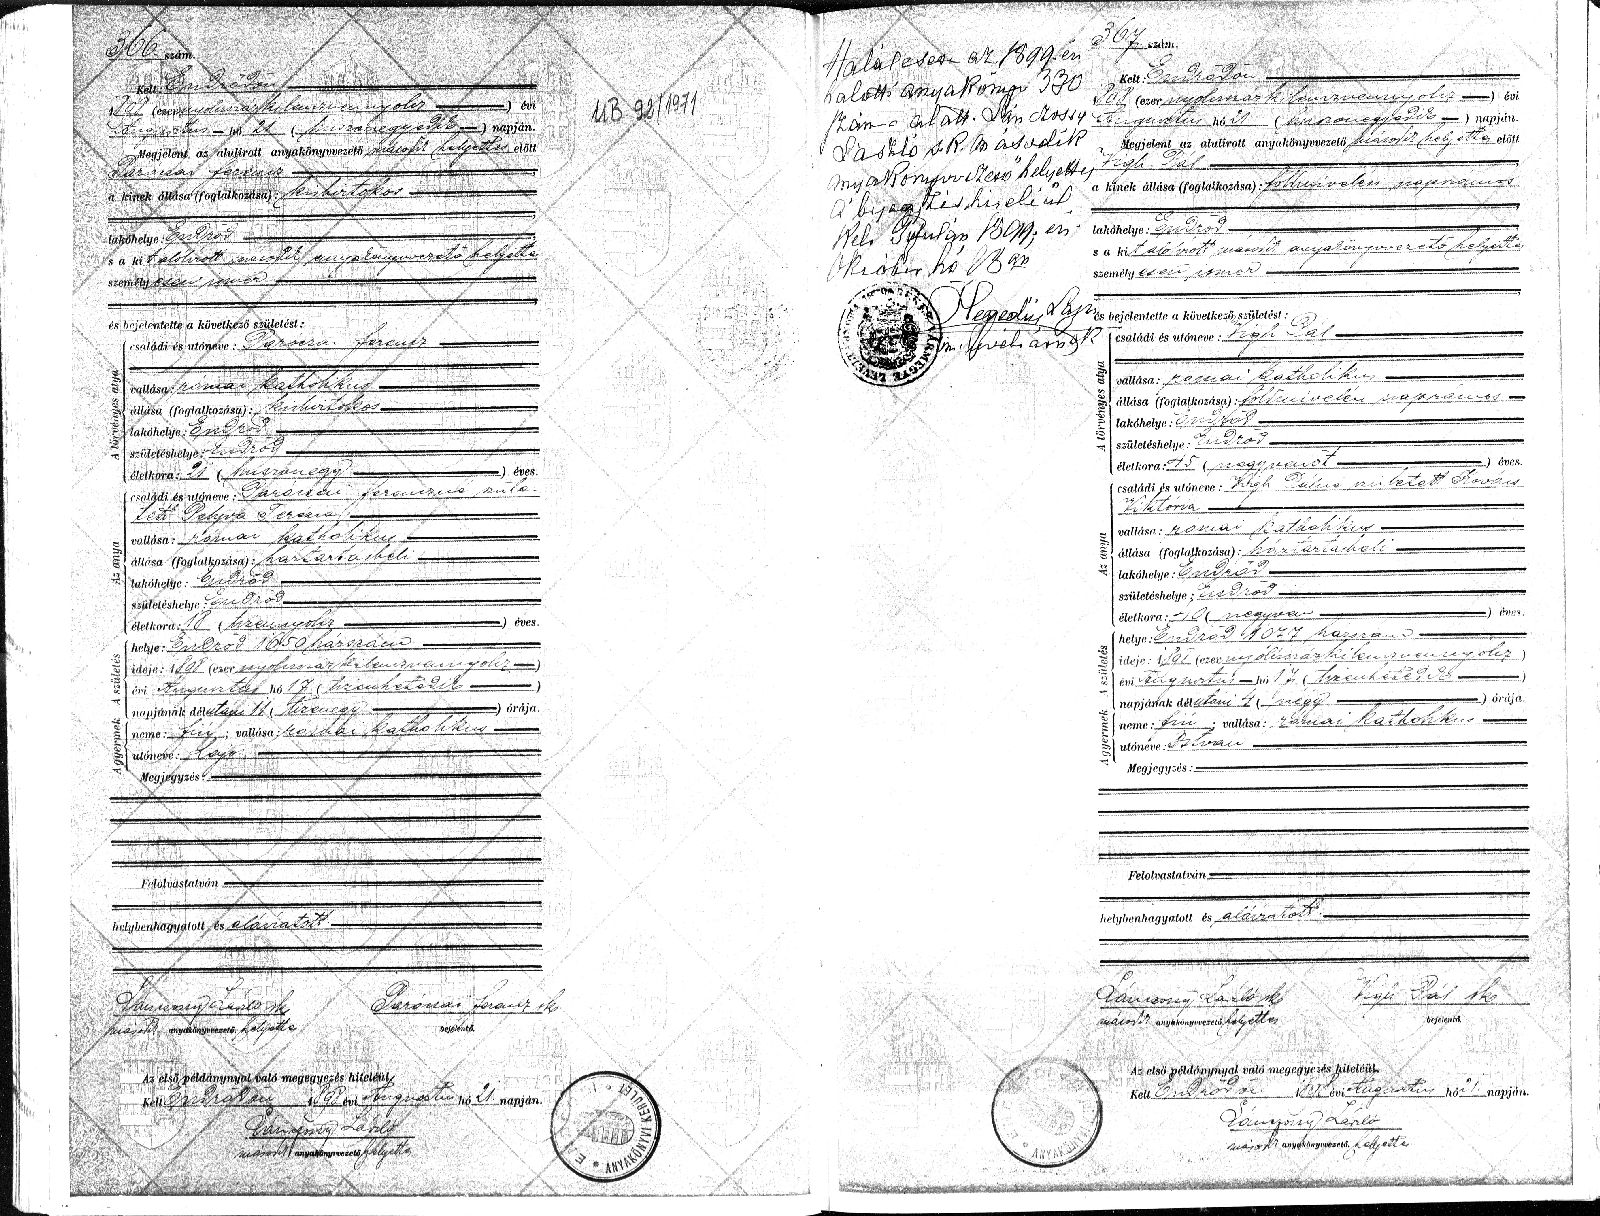 366 szám.
Kelt: Endrődön
1898 (ezernyolczszázkilenczvennyolcz) évi
Augusztus hó 21 (huszonegyedik) napján.
Megjelent az alulirott anyakönyvvezető második helyettes előtt
Ferencz
a kinek állása (foglalkozása): kisbirtokos
lakóhelye: Endrőd
s a kit alulirott második anyakönyvvezető helyettes
személyesen ismer
és bejelentette a következő születést:
A törvényes atya
családi és utóneve: Ferencz
vallása: római katholikus
állása (foglalkozása): kisbirtokos
lakóhelye: Endrőd
születéshelye: Endrőd
életkora: 21 (huszonegy) éves.
Az anya
családi és utóneve: Ferenczné szüle-
tett Teréza
vallása: római katholikus
állása (foglalkozása): háztartásbeli
lakóhelye: Endrőd
születéshelye: Endrőd
életkora: 18 (tizennyolcz) éves.
A születés
helye: Endrőd 1650 házszám
ideje: 1898 (ezernyolczszázkilenczvennyolcz)
évi Augusztus hó 17 (tizenhetedik)
napjának délutáni 11 (tizenegy) órája.
A gyermek
neme: fiú; vallása: római katholikus
utóneve: Lajos
Megjegyzés:
Felolvastatván
helybenhagyatott és aláiratott
László sk Ferencz sk
második anyakönyvvezető helyettes bejelentő.
Az első példánynyal való megegyezés hiteléül
Kelt Endrődön 1898 évi Augusztus hó 21 napján.
László
második anyakönyvvezető helyettes
MB 92/1971
Haláleset az 1899. évi
halotti anyakönyv 330
szám alatt.
László sk. második
anyakönyvvezető helyettes
A bejegyzés hiteléül
Kelt Gyulán 1899. évi
Október hó
Hegedűs
levéltárnok
367 szám.
Kelt: Endrődön
1898 (ezernyolczszázkilenczvennyolcz) évi
Augusztus hó 21 (huszonegyedik) napján.
Megjelent az alulirott anyakönyvvezető második helyettes előtt
Vigh Pál
a kinek állása (foglalkozása): földmivelési napszámos
lakóhelye: Endrőd
s a kit alólirott második anyakönyvvezető helyettes
személyesen ismer
és bejelentette a következő születést:
A törvényes atya
családi és utóneve: Vigh Pál
vallása: római katholikus
állása (foglalkozása): földmivelési napszámos
lakóhelye: Endrőd
születéshelye: Endrőd
életkora: 45 (negyvenöt) éves.
Az anya
családi és utóneve: Vigh Pálné született Kovács
Viktória
vallása: római katholikus
állása (foglalkozása): háztartásbeli
lakóhelye: Endrőd
születéshelye: Endrőd
életkora: 40 (negyven) éves.
A születés
helye: Endrőd 1077 házszám
ideje: 1898 (ezernyolczszázkilenczvennyolcz)
évi Augusztus hó 17 (tizenhetedik)
napjának délutáni 4 (négy) órája.
A gyermek
neme: fiú; vallása: római katholikus
utóneve: István
Megjegyzés:
Felolvastatván
helybenhagyatott és aláiratott
László sk Vigh Pál sk
második anyakönyvvezető helyettes bejelentő.
Az első példánynyal való megegyezés hiteléül.
Kelt Endrődön 1898 évi Augusztus hó 21 napján.
László
második anyakönyvvezető helyettes